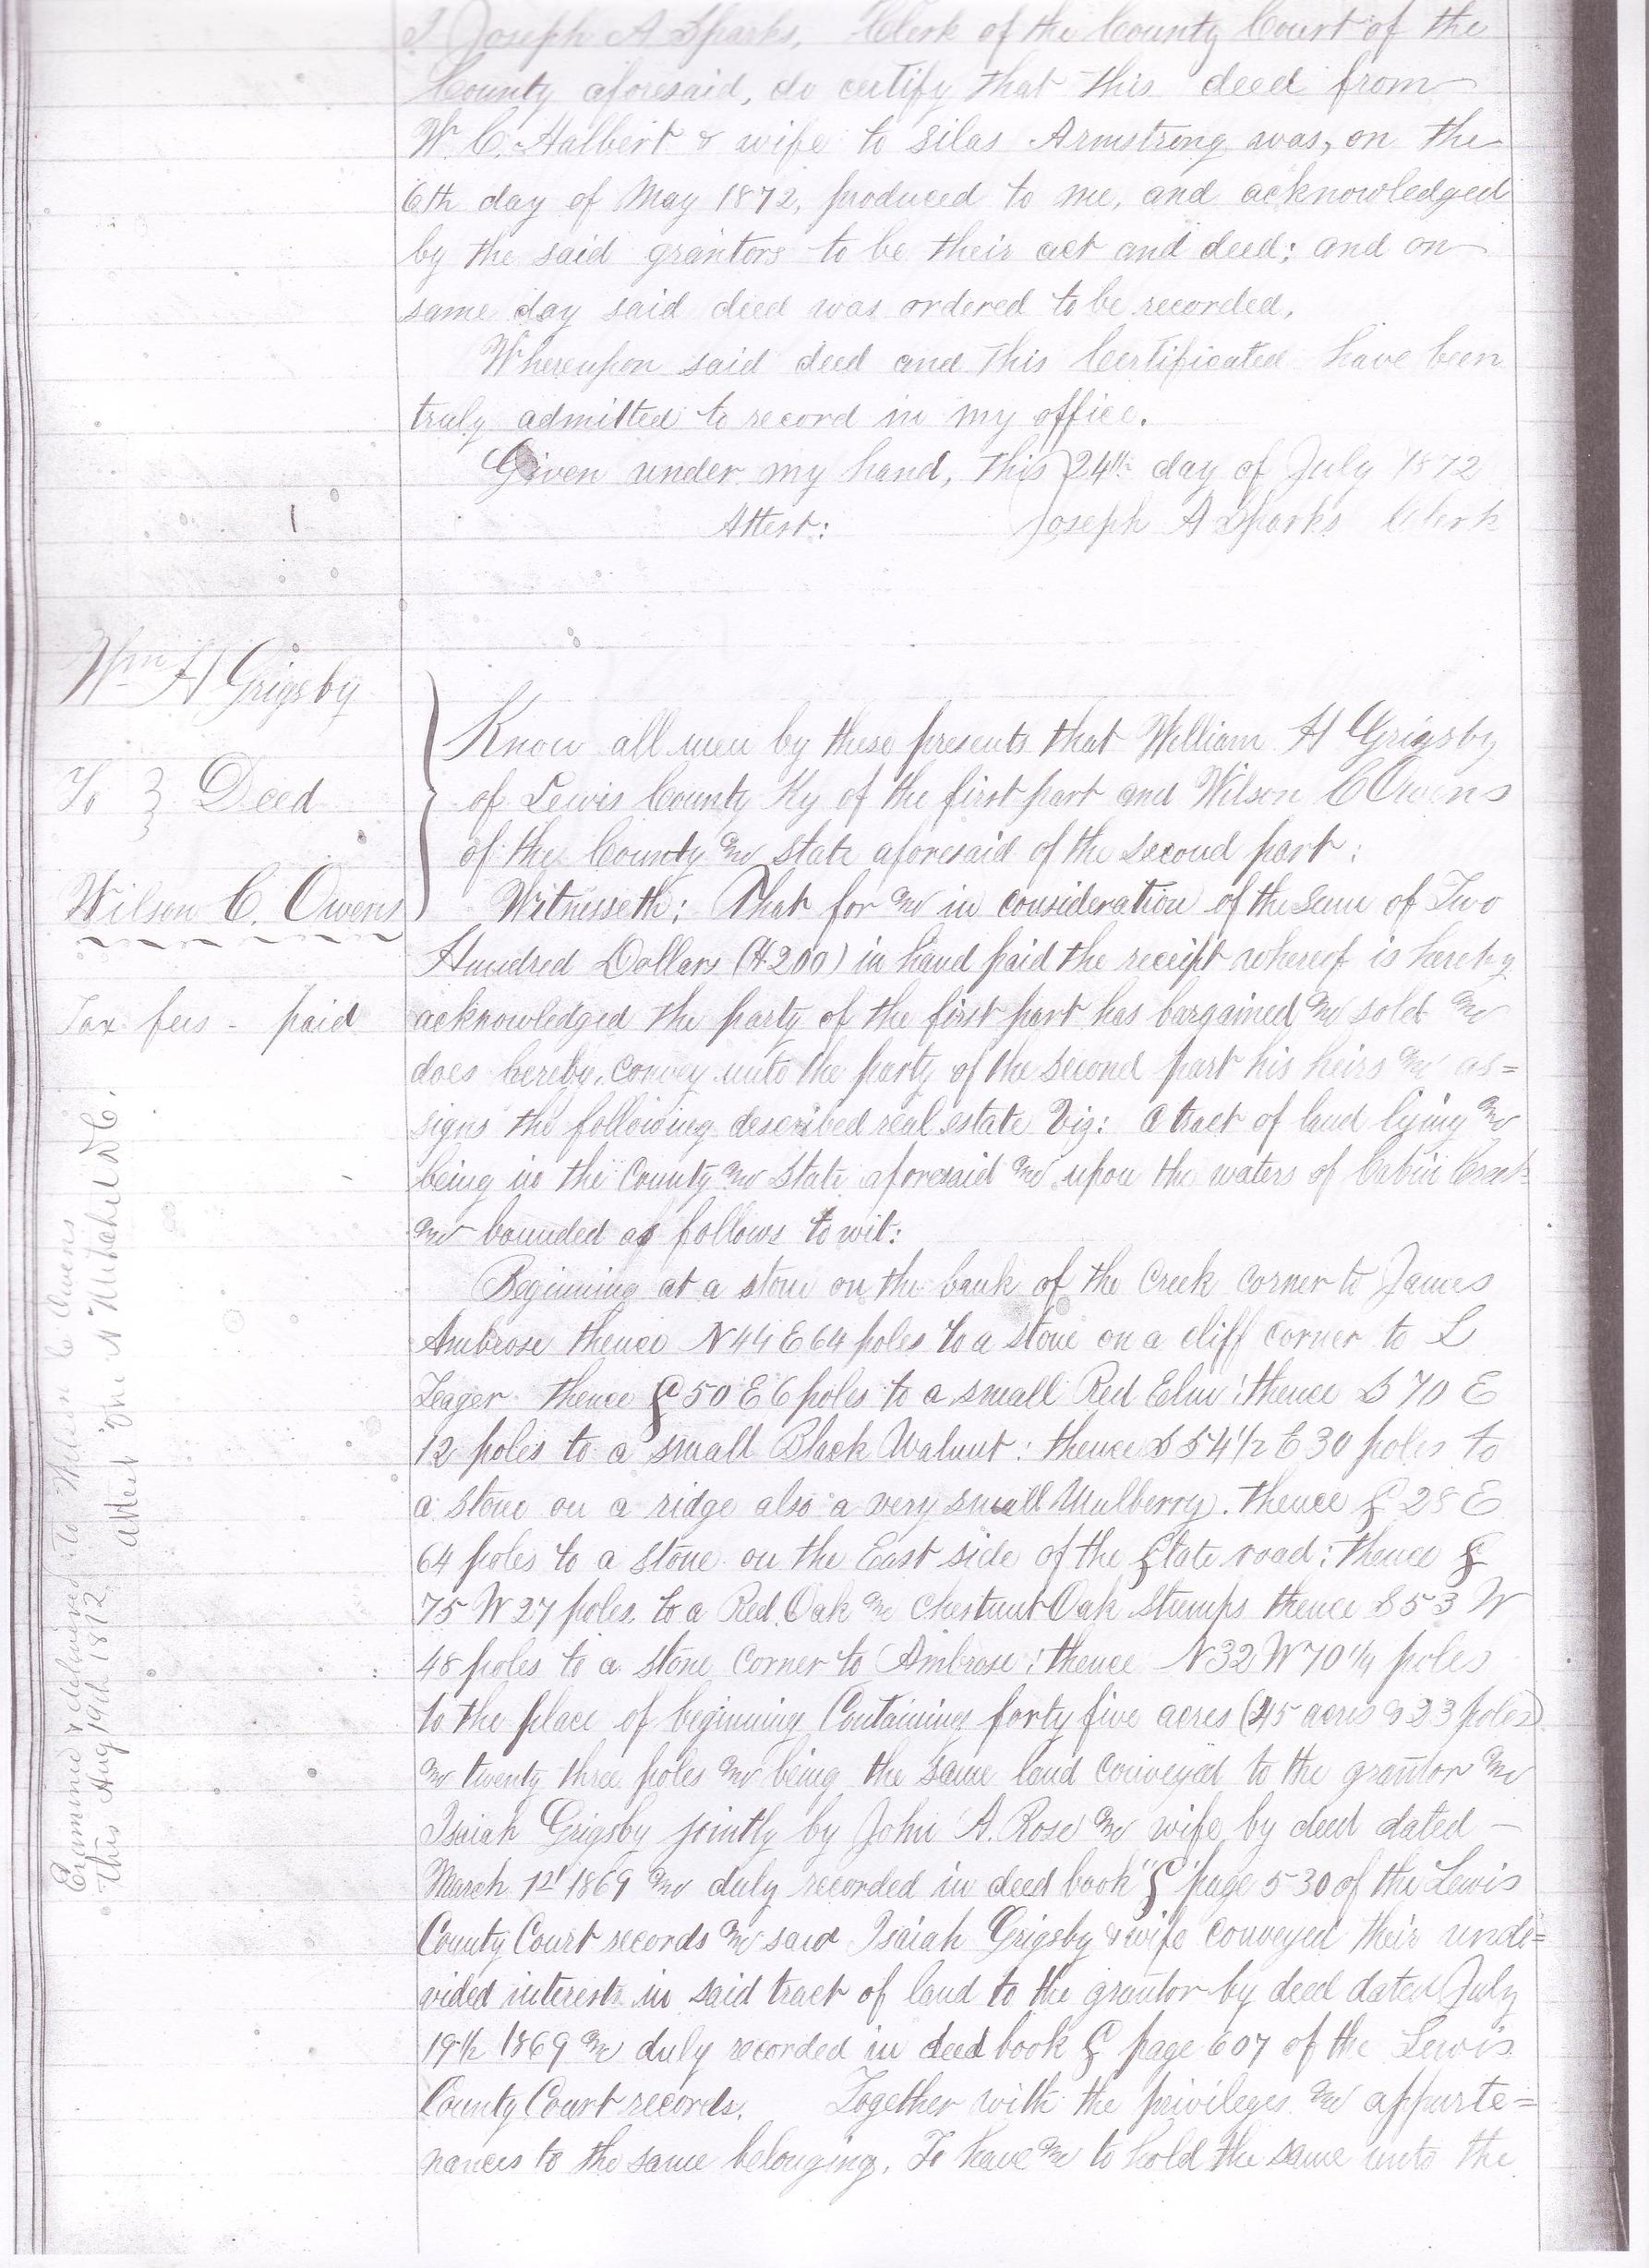 I Joseph A Sparks, Clerk of the County Court of the
County aforesaid, do certify that this deed from
W. C. Halbert & wife to Silas Armstrong was, on the
6th day of May 1872, produced to me, and acknowledged
by the said grantors to be their act and deed; and on
same day said deed was ordered to be recorded,
Whereupon said deed and this Certificated have been
truly admitted to record in my office.
Given under my hand, this 24th day of July 1872
Attest: Joseph A Sparks Clerk
Wm H Grigsby
To } Deed
Wilson C. Owens
Tax fees - paid
Know all men by these presents that William H Grigsby
of Lewis County Ky of the first part and Wilson C Owens
of the County and State aforesaid of the second part:
Witnesseth: That for and in consideration of the sum of Two
Hundred Dollars ($200) in hand paid the receipt whereof is hereby
acknowledged the party of the first part has bargained and sold and
does hereby convey unto the party of the second part his heirs and as=
signs the following described real estate Viz: A tract of land lying and
being in the County and State aforesaid and upon the waters of Cabin Creek
and bounded as follows to wit:
Beginning at a stone on the bank of the Creek corner to James
Ambrose thence N 44 E 64 poles to a stone on a cliff corner to L
Teager thence S 50 E 6 poles to a small Red Elm; thence S 70 E
12 poles to a small Black Walnut: thence S 54 1/2 E 30 poles to
a stone on a ridge also a very small Mulberry. thence S 28 E
64 poles to a stone on the East side of the State road; thence S
75 W 27 poles to a Red Oak and Chestnut Oak Stumps thence S 53 W
48 poles to a stone corner to Ambrose; thence N 32 W 70 1/4 poles
to the place of beginning Containing forty five acres (45 acres & 23 poles)
and twenty three poles and being the same land conveyed to the grantor and
Isaiah Grigsby jointly by John A. Rose and wife by deed dated —
March 1st 1869 and duly recorded in deed book "S" page 530 of the Lewis
County Court records and said Isaiah Grigsby & wife conveyed their undi=
vided interests in said tract of land to the grantor by deed dated July
19th 1869 and duly recorded in deed book S page 607 of the Lewis
County Court records. Together with the privileges and appurte=
nances to the same belonging. To have and to hold the same unto the
Examined & delivered to Wilson C Owens
This Aug 19th 1872 attest N Mitchel D.C.